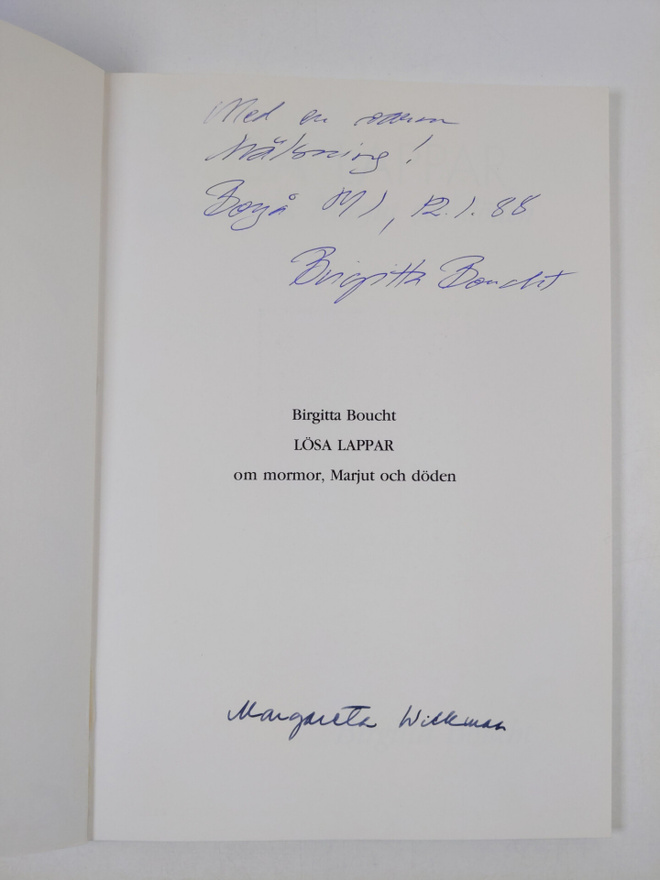 Med en varm
hälsning!
Borgå MI, 12.1.88
Birgitta Boucht
Birgitta Boucht
LÖSA LAPPAR
om mormor, Marjut och döden
Margareta Willman